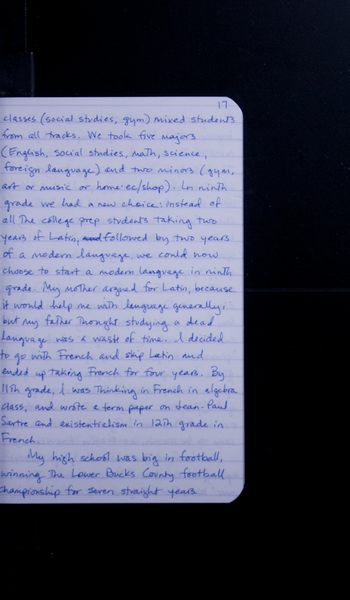 17
classes (social studies, gym) mixed students
from all tracks. We took five majors
(English, social studies, math, science,
foreign language) and two minors (gym,
art or music or home ec/shop). In ninth
grade we had a new choice: instead of
all the college prep students taking two
years of Latin, and followed by two years
of a modern language, we could now
choose to start a modern language in ninth
grade. My mother argued for Latin, because
it would help me with language generally;
but my father thought studying a dead
language was a waste of time. I decided
to go with French and skip Latin and
ended up taking French for four years. By
11th grade, I was thinking in French in algebra
class, and wrote a term paper on Jean-Paul
Sartre and existentialism in 12th grade in
French.
My high school was big in football,
winning the Lower Bucks County football
championship for seven straight years